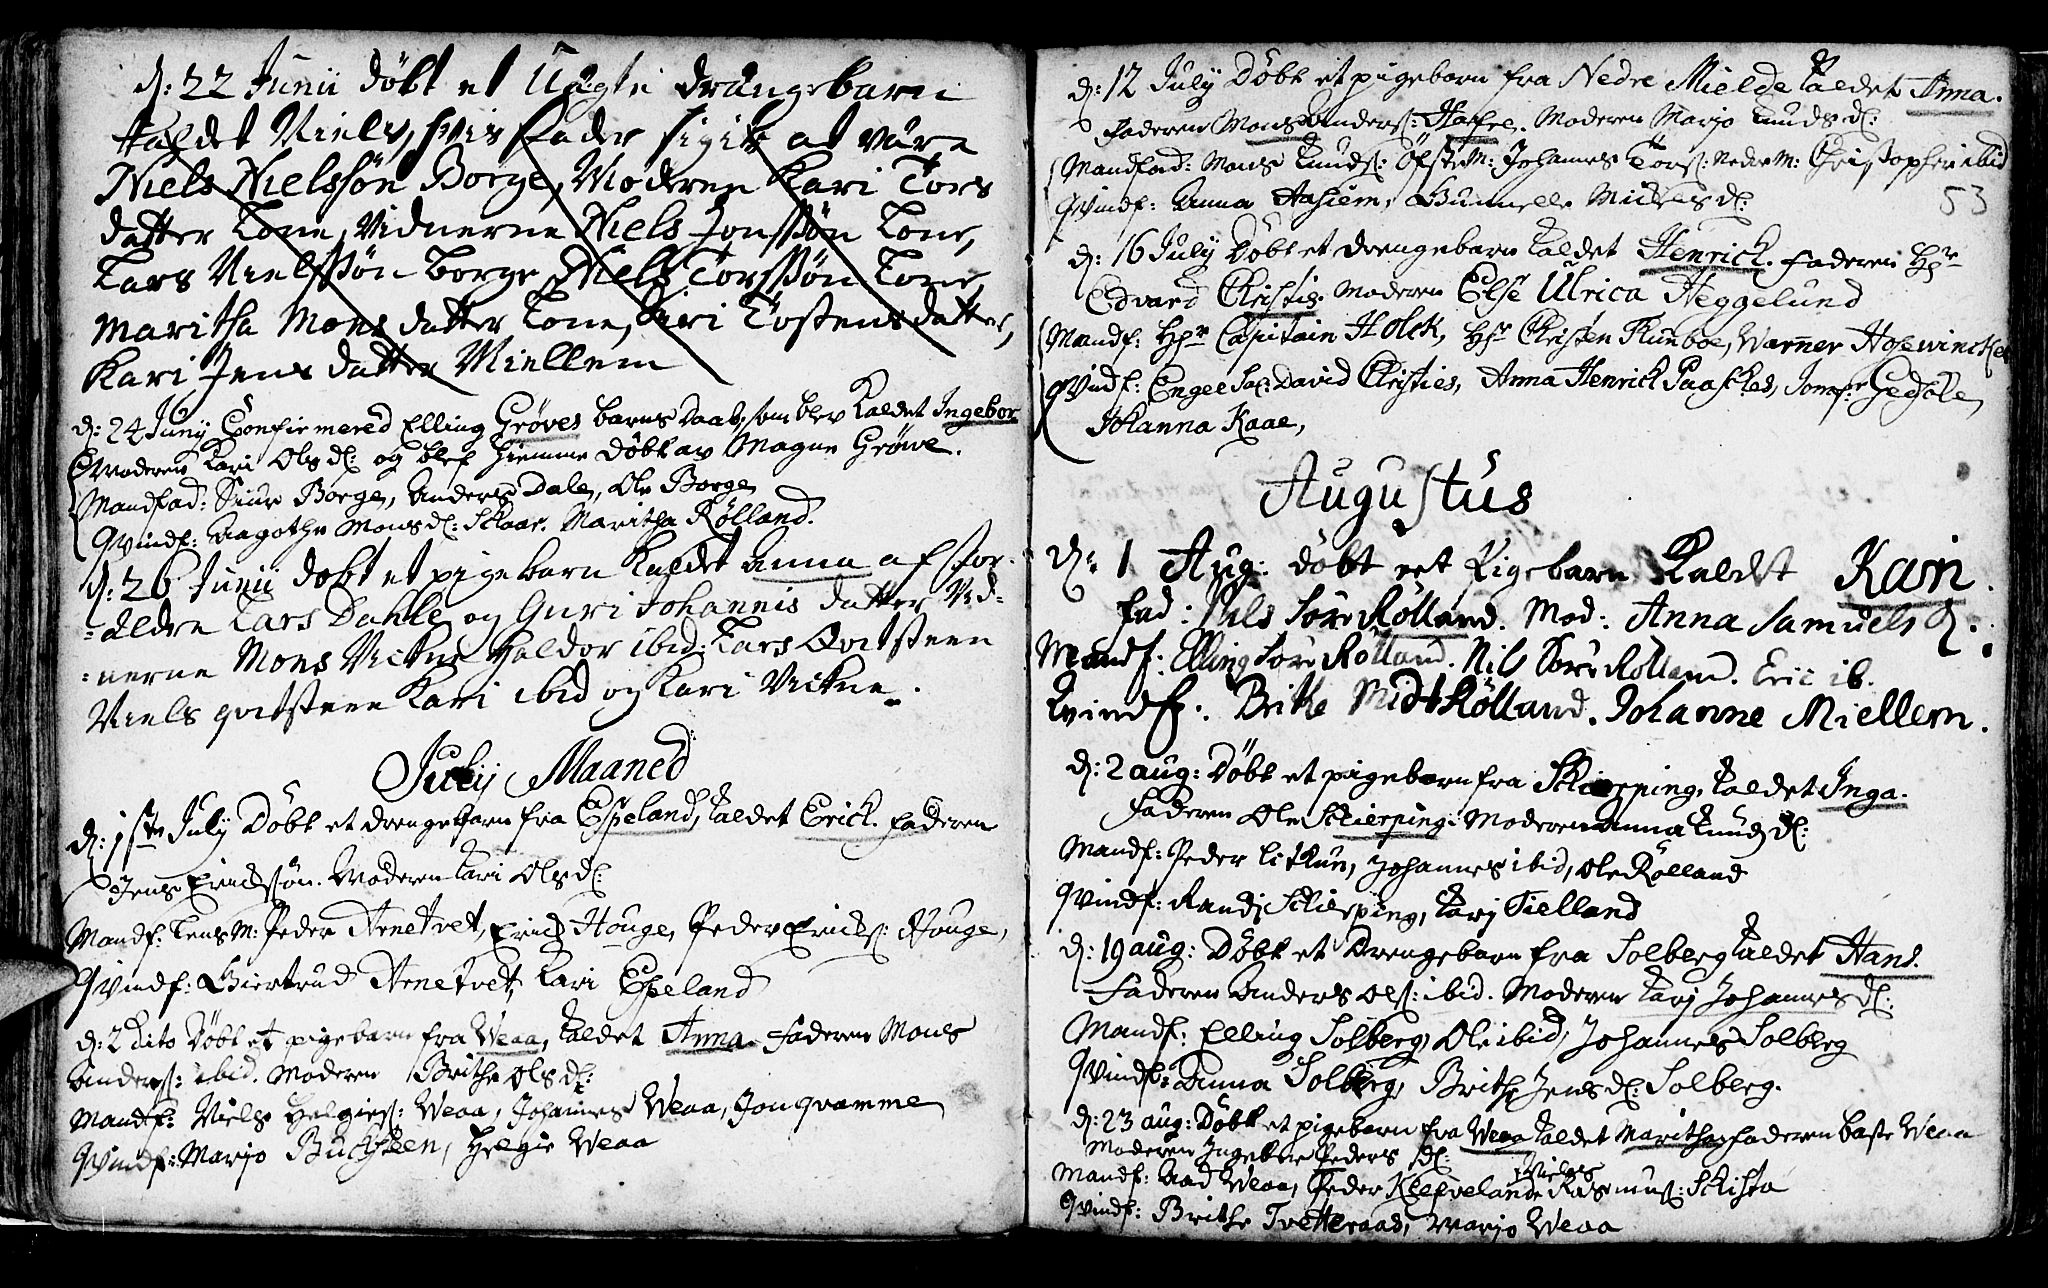 d: 22 Junii døbt et Uægte drængebarn
Kaldet Niels, hvis fader sigis at være
Niels Nielssøn Borge, Moderen Kari Tors
datter Tone, Vidnerne Niels Jonssøn Tone,
Lars Nielssøn borge, Niels Torssøn Tone,
Maritha Mons datter Tone, Kari Tostens datter,
Kari Jens datter Miellem
d: 24 Junij Confirmered Elling Grøves barns Daab, som blev Kaldet Ingebor
Moderen Kari Ols d: og blef hiemme Døbt av Magne Grøve.
Mandfad: Siur Borge, Anders Dale, Ole Borge
Qvindf: Aagothe Mons d: Skaar. Maritha Rølland.
d: 26 Junii døbt et pigebarn Kaldet Anna af for-
-ældre Lars Dahle og Guri Johannis datter Vid-
-nerne Mons Vickne Haldor ibid: Lars Qvitsteen
Niels qvitsteen Kari ibid og Kari Vickne.
Julij Maaned
d: 1ste July Døbt et drengebarn fra Espeland, Kaldet Erick. Faderen
Jens Erickssøn. Moderen Kari Ols d:
Mandf: Lens M: Peder Arnetvet, Erick Houge, Peder Ericks: Houge,
Qvindf: Giertrud Arnetvet, Kari Espeland
d: 2 dito Døbt et pigebarn fra Weaa, Kaldet Anna. Faderen Mons
Anders: ibid. Moderen Brithe Ols d:
Mandf: Niels Helgies: Weaa, Johannes Weaa, Jon qvamme
Qvindf: Marjo Bucksteen, Helgie Weaa
d: 12 July Døbt et pigebarn fra Nedre Mielde Kaldet Anna.
Faderen Mons Anders: Moderen Marjo Knuds d:
Mandfad: Mons Knuds: Øfste M: Johannes Tors: Nedre M: Christopher ibid
Qvindf: Anna Aasiem, Gunnelle Mickels d:
53
d: 16 July Døbt et drengebarn Kaldet Henrick. Faderen Hr
Edvard Christis. Moderen Else Ulrica Heggelund
Mandf: Hr Capitain Holck, Hr Christen Runboe, Warner Hosewinckel
Qvindf: Engel Sal: David Christies, Anna Henrick Paasches, Jomfr Gedsole,
Johanna Kaae,
Augustus
d: 1 Aug: døbt eet Pigebarn Kaldet Kari.
Fad: Nils Søre Rølland. Mod: Anna Samuels d.
Mandf: Elling Søre Rølland. Nils Søre Rølland. Eric ib.
Kvindf: Brithe Midt Rølland. Johanne Miellem.
d: 2 aug: Døbt et pigebarn fra Skierping, Kaldet Inga.
Faderen Ole Skierping. Moderen Anna Knuds d:
Mandf: Peder Litkun, Johannes ibid, Ole Rølland
Qvindf: Randj Skierping, Karj Tielland
d: 19 aug: Døbt et Drengebarn fra Solberg Kaldet Hans.
Faderen Anders Ols: ibid. Moderen Karj Johannes d:
Mandf: Elling Solberg, Ole ibid, Johannes Solberg
Qvindf: Anna Solberg, Brithe Jens d: Solberg.
d: 23 aug: Døbt et pigebarn fra Weaa Kaldet Maritha, Faderen Baste Weaa
Moderen Ingebor Peders d:
Mandf: Aad Weaa, Peder Klefveland, Niels Rasmus: Skista
Qvindf: Brithe Tvetteraas, Marjo Weaa